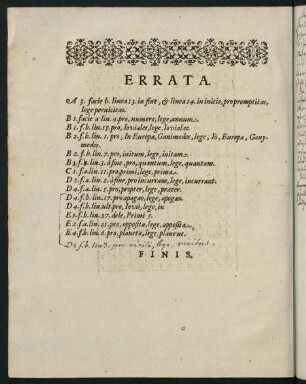 ERRATA.
A 3. facie b. linea 13. in fine, & linea 14. in initio, pro promptitas,
lege pernicitas.
B 1. facie a lin. 4. pro, numero, lege, annum.
B 1. f. b. lin. 15. pro, brvialer, lege,
B 2. f. b. lin. 1. pro, Io Europa, Ganimedes, lege, Iô, Europa, Gany-
medes.
B 2. f. b. lin. 7. pro, initum, lege, initam.
B 3. lin. 3. à fine, pro, quantum, lege, quantam.
C 1. f. a lin. 21. pro primi, lege, prima.
D 2. f. a. lin. 2. à fine, pro incurram, lege, incurrant.
D 4. f. a. lin. 5. pro, propter, lege, præter.
D 4. f. b. lin. 17. pro apagæo, lege, apogæo.
D 4. f. b. lin. ult. pro, Iovis, lege, in
E 2. f. b. lin. 27. dele, Primi 5.
E 2. f. a. lin. 21. pro, opposita, lege, apposita.
E 4. f. b. lin. 6. pro, planetæ, lege, planè ut.
D 4. f. b. lin. 3. pro virili, lege, viribus.
FINIS.